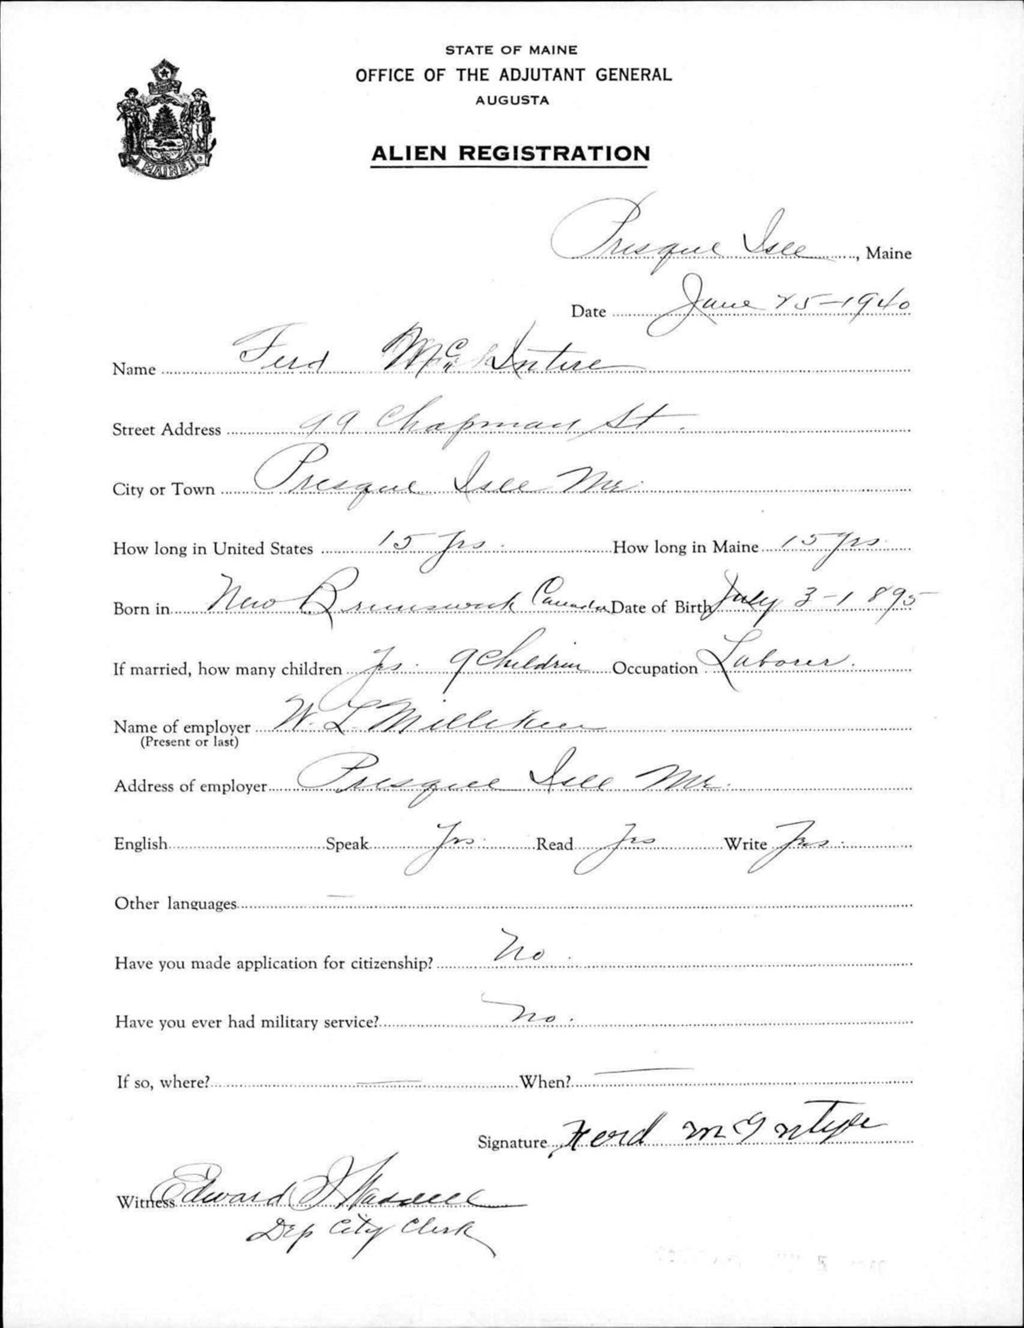 STATE OF MAINE
OFFICE OF THE ADJUTANT GENERAL
AUGUSTA
MAINE
ALIEN REGISTRATION
Presque Isle, Maine
Date June 25-1940
Name Ferd McIntire
Street Address 49 Chapman St.
City or Town Presque Isle Me.
How long in United States 15 yrs. How long in Maine 15 yrs.
Born in New Brunswick Canada Date of Birth July 3-1895
If married, how many children Yes. 9 Children Occupation Laborer.
Name of employer W. L. Milliken
(Present or last)
Address of employer Presque Isle Me.
English Speak Yes. Read Yes Write Yes.
Other languages —
Have you made application for citizenship? No.
Have you ever had military service? No.
If so, where? — When? —
Signature Ferd McIntyre
Witness Edward
Dep City Clerk